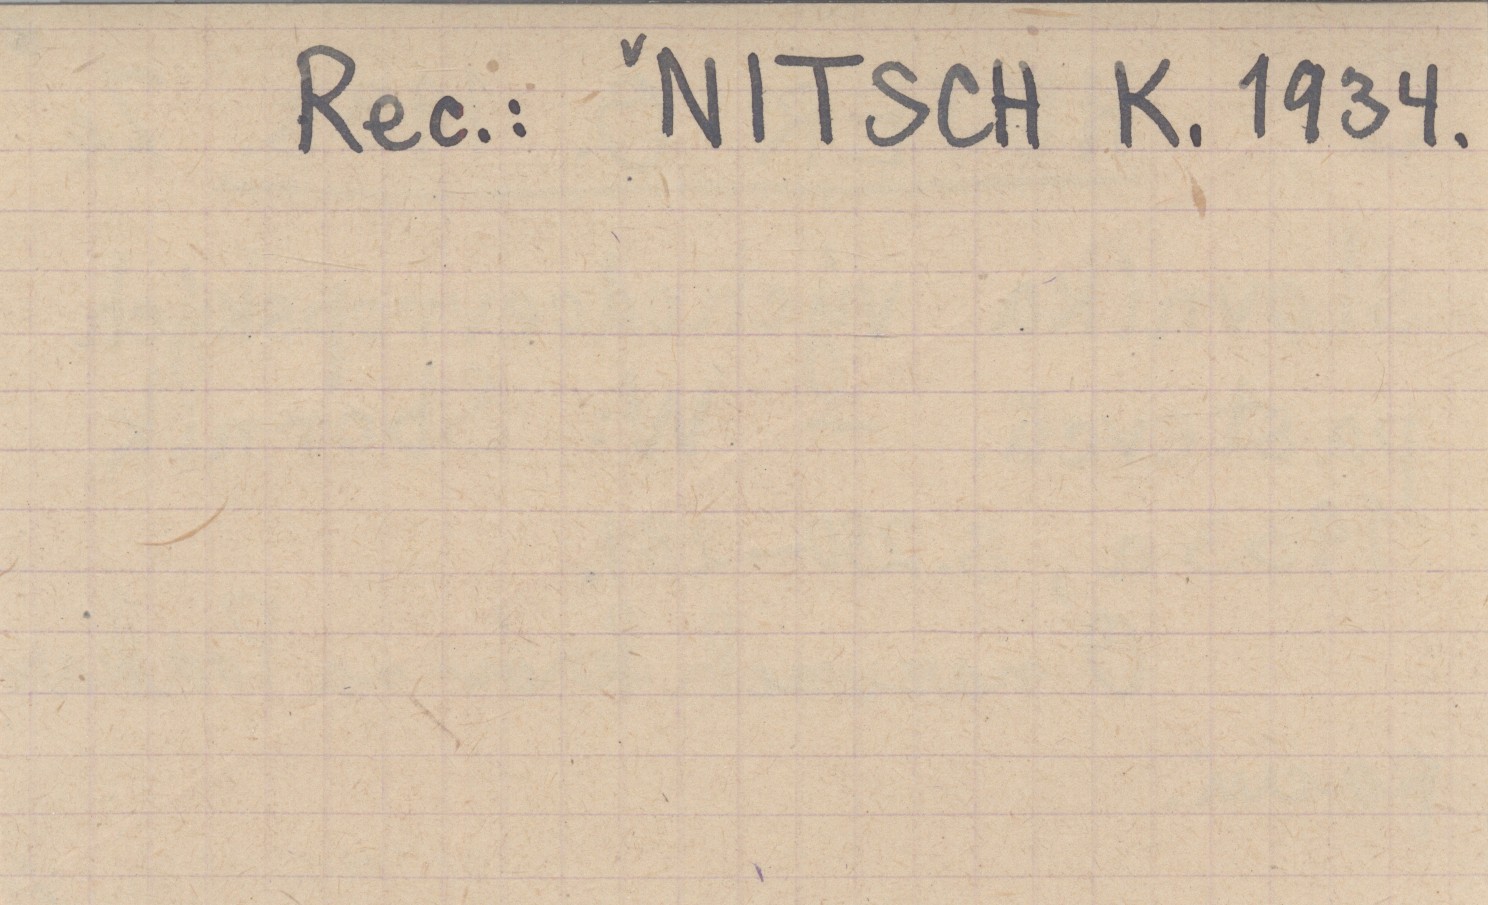 Rec.: ˇNITSCH K. 1934.